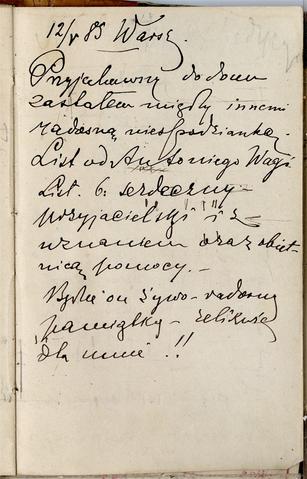 12/V 85 Warsz.
Przyjechawszy do domu
zastałem między innemi
radosną niespodziankę.
List od Antoniego Wagi
List. b. serdeczny
przyjacielski i z
uznaniem oraz obiet-
nicą pomocy. –
Będzie on żywo – radosną
pamiątką – relikwią
dla mnie !!